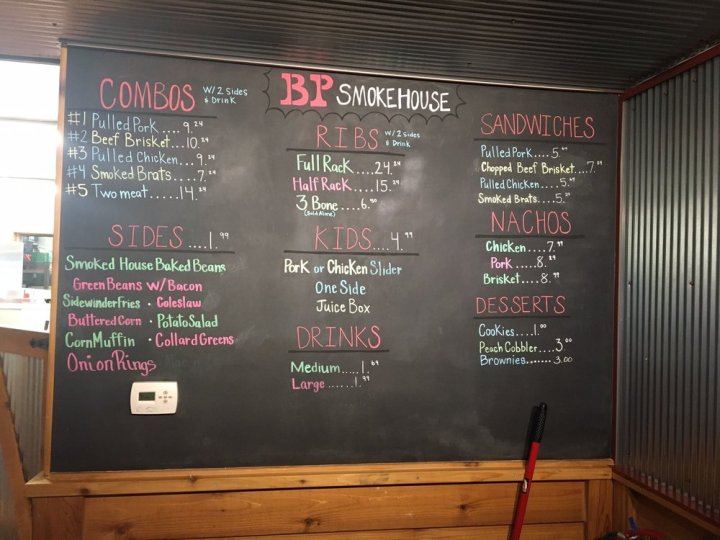 BP SMOKEHOUSE
COMBOS W/ 2 Sides & Drink
#1 Pulled Pork....9.24
#2 Beef Brisket...10.24
#3 Pulled Chicken...9.24
#4 Smoked Brats....7.24
#5 Two meat.....14.24
SIDES....1.99
Smoked House Baked Beans
Green Beans W/ Bacon
Sidewinder Fries · Coleslaw
Buttered Corn · Potato Salad
Corn Muffin · Collard Greens
Onion Rings
RIBS W/ 2 sides & Drink
Full Rack....24.24
Half Rack....15.24
3 Bone....6.50
(Sold Alone)
KIDS....4.99
Pork or Chicken Slider
One Side
Juice Box
DRINKS
Medium....1.69
Large......1.99
SANDWICHES
Pulled Pork....5.
Chopped Beef Brisket....7.
Pulled Chicken....5.
Smoked Brats....5.
NACHOS
Chicken....7.99
Pork.....8.
Brisket....8.99
DESSERTS
Cookies....1.00
Peach Cobbler....3.00
Brownies.......3.00